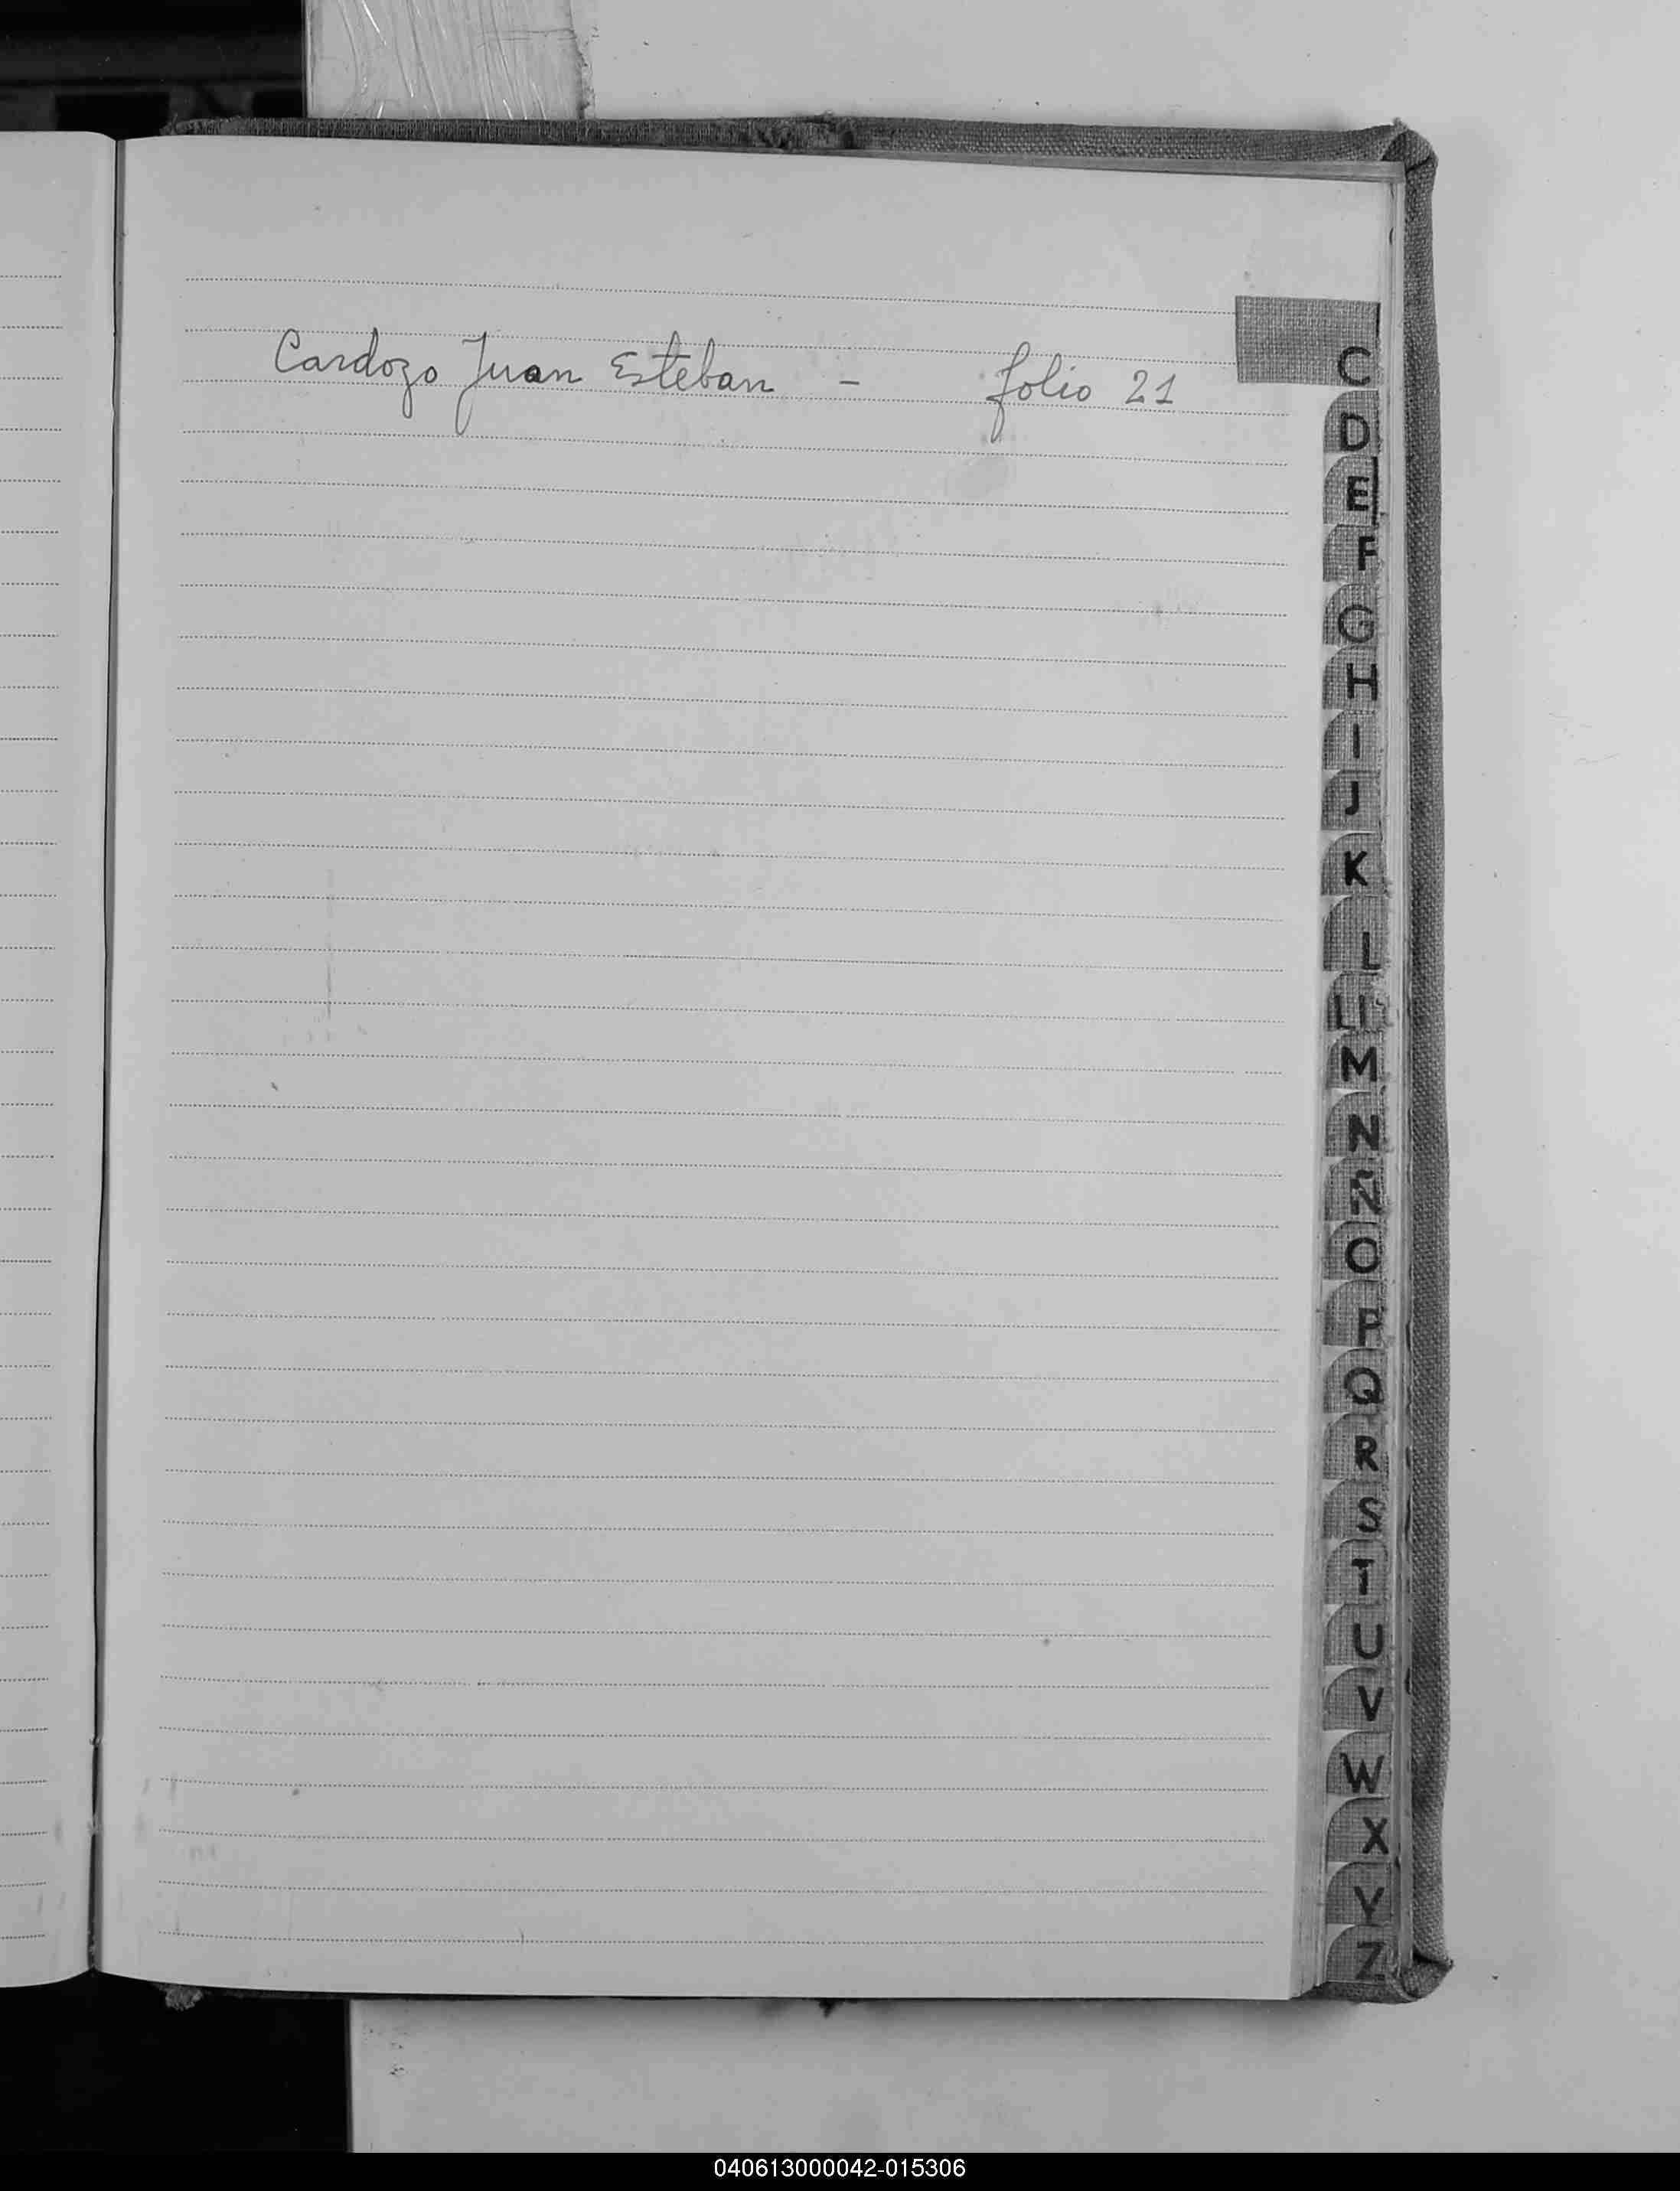 Cardozo Juan Esteban - folio 21
C
D
E
F
G
H
I
J
K
L
LL
M
N
Ñ
O
P
Q
R
S
T
U
V
W
X
Y
Z
040613000042-015306